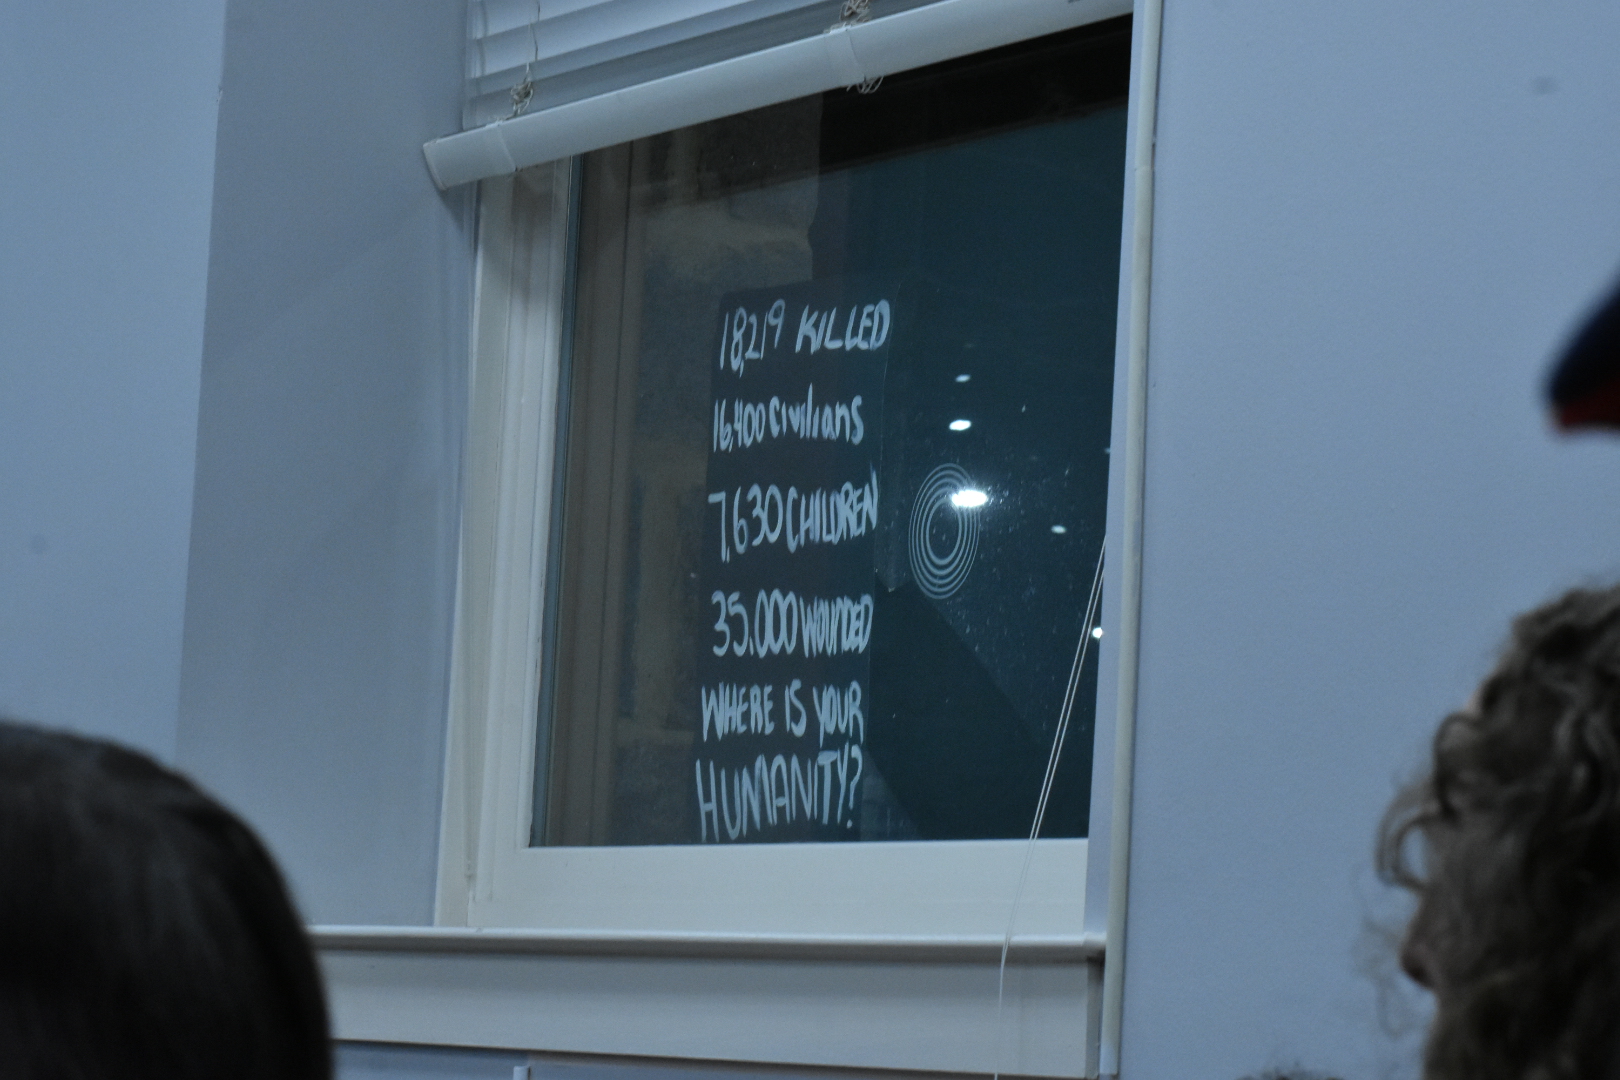 18,219 KILLED
16,400 Civilians
7,630 CHILDREN
35.000 WOUNDED
WHERE IS YOUR
HUMANITY?